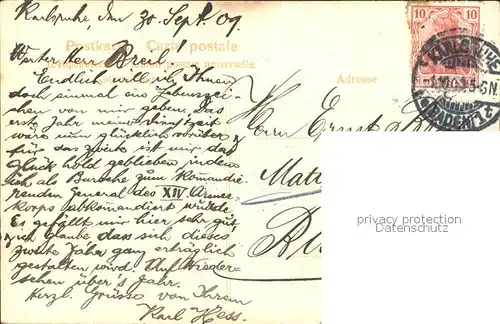 Karlsruhe, den 30. Sept. 09.
Postkarte Carte postale
Werter Herr Breil!
Endlich will ich Ihnen
doch einmal ein Lebenszei=
chen von mir geben. Das
erste Jahr meiner Dienstzeit
wäre nun glücklich vorüber
für das zweite ist mir das
Glück hold geblieben indem
ich als Bursche zum Komandie=
renden General des XIV Armee-
Korps abkomandiert wurde.
Es gefällt mir hier sehr gut,
ich glaube dass sich dieses
zweite Jahr ganz erträglich
gestalten wird. Auf Wieder=
sehen über's Jahr.
Herzl. Grüsse von Ihrem
Karl Hess.
Adresse
10 10
Herrn Ernst
privacy protection
Datenschutz